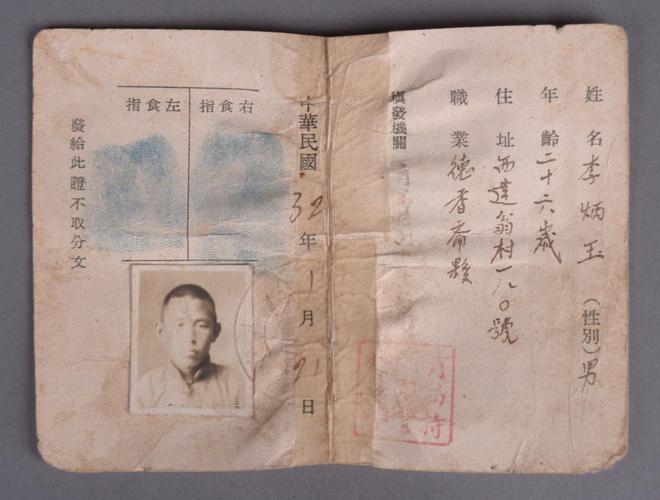 姓名李炳玉（性別）男
年齡二十六歲
住址西達翁村一八〇號
職業德香齋夥
填發機關
中華民國32年1月21日
右食指
左食指
發給此證不取分文